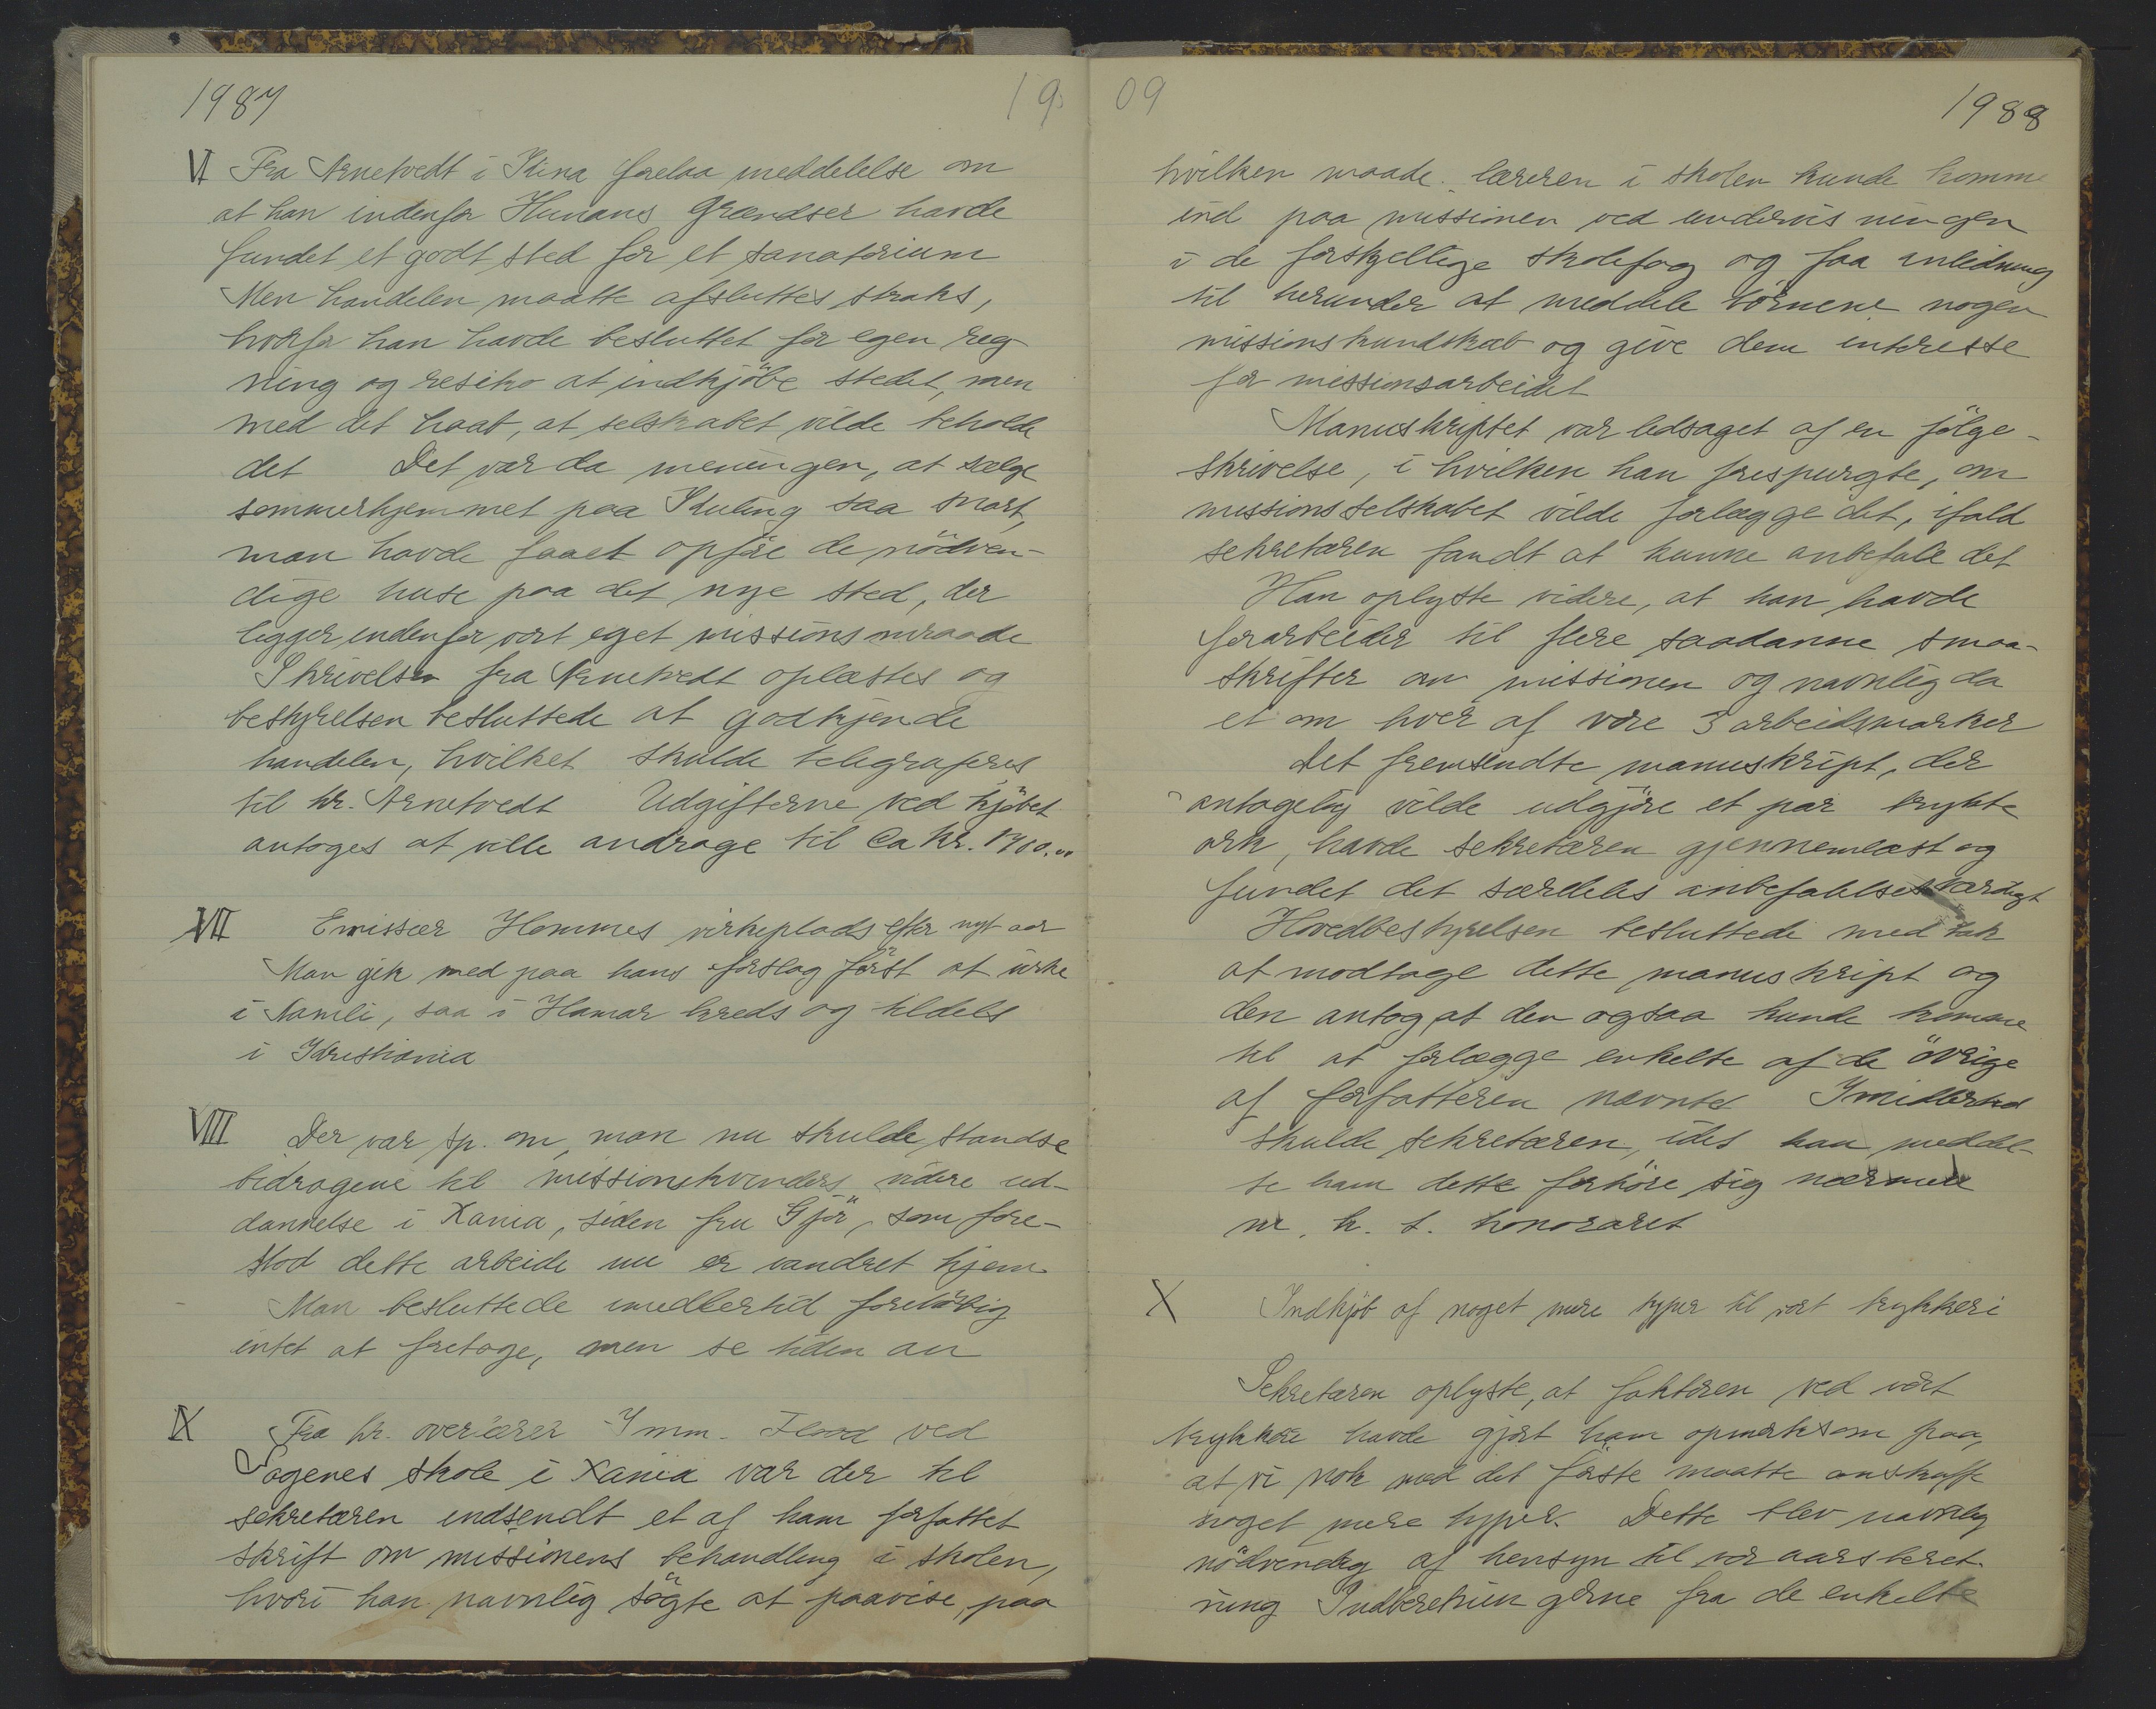 1987
19
VI Fra Arnetvedt i Kina forelaa meddelelse om
at han indenfor Hunans Grændser havde
fundet et godt sted for et sanatorium
Men handelen maatte afsluttes straks,
hvorfor han havde besluttet for egen reg-
ning og resiko at indkjöbe stedet, men
med det haab, at selskabet vilde beholde
det Det var da meningen, at sælge
sommerhjemmet paa Kuling saa snart,
man havde faaet opföre de nödven-
dige huse paa det nye sted, der
ligger indenfor vort eget missionsomraade
Skrivelsen fra Arnetvedt oplæstes og
bestyrelsen besluttede at godkjende
handelen, hvilket skulde telegraferes
til hr. Arnetvedt Udgifterne ved kjöbet
antoges at ville andrage til Ca kr.
VII Emissær Hommes virkeplads efter nyt aar
Man gik med paa hans forslag först at virke
i Namli, saa i Hamar kreds og tildels
i Kristiania
VIII Der var sp. om, man nu skulde standse
bidragene til missionskvinders videre ud-
dannelse i Xania, siden fru Gjör, som fore-
stod dette arbeide nu er vandret hjem
Man besluttede imidlertid forelöbig
intet at foretage, men se tiden an
IX Fra hr. overlærer Imm. Flood ved
Sagenes skole i Xania var der til
sekretæren indsendt et af ham forfattet
skrift om missionens behandling i skolen,
hvori han navnlig sögte at paavise, paa
09
1988
hvilken maade læreren i skolen kunde komme
ind paa missionen ved undervisningen
i de forskjellige skolefag og faa anledning
til herunder at meddele börnene nogen
missionskundskab og give dem interesse
for missionsarbeidet
Manuskriptet var ledsaget af en fölge-
skrivelse, i hvilken han forespurgte, om
missionsselskabet vilde forlægge det, ifald
sekretæren fandt at kunne anbefale det
Han oplyste videre, at han havde
forarbeider til flere saadanne smaa-
skrifter om missionen og navnlig da
et om hver af vore 3 arbeidsmarker
Det fremsendte manuskript, der
antagelig vilde udgjöre et par trykte
ark, havde sekretæren gjennemlæst og
fundet det særdeles anbefalelsesværdigt
Hovedbestyrelsen besluttede med tak
at modtage dette manuskript og
den antog at den ogsaa kunde komme
til at forlægge enkelte af de övrige
af forfatteren nævnte Imidlertid
skulde sekretæren, idet han meddel-
te ham dette forhöre sig nærmere
m. h. t. honoraret
X Indkjöb af noget mere typer til vort trykkeri
Sekretæren oplyste, at faktoren ved vort
trykkeri havde gjort ham opmerksom paa,
at vi nok med det förste maatte anskaffe
noget mere typer. Dette blev navnlig
nödvendig af hensyn til vor aarsberet-
ning Indberetningerne fra de enkelte